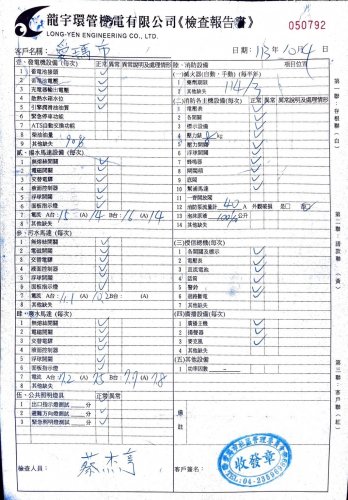 龍宇環管機電有限公司《檢查報告書》
LONG-YEN ENGINEERING CO., LTD.
050792
客戶名稱：愛瑪市
日期：113年10月4日
壹、發電機設備 (每次) 正常 異常 異常說明及處理情形
1 蓄電池接頭
2 蓄電池電壓
3 充電器輸出電壓
4 散熱水箱水位
5 引擎潤滑油油質
6 緊急停車功能
7 ATS自動交換功能
8 柴油油量
9 其他缺失 90%
貳、揚水馬達設備 (每次)
1 無熔絲開關
2 電磁開關
3 交替電驛
4 液面控制器
5 浮球開關
6 面板指示燈
7 電流 A台：15 (A) 14 B台：16 (A) 14
8 其他缺失
參、污水馬達 (每次)
1 無熔絲開關
2 電磁開關
3 交替電驛
4 液面控制器
5 浮球開關
6 面板指示燈
7 電流 A台 (A) B台： (A)
8 其他缺失
肆、廢水馬達 (每次)
1 無熔絲開關
2 電磁開關
3 交替電驛
4 液面控制器
5 浮球開關
6 面板指示燈
7 電流 A台 (A) B台： (A)
8 其他缺失
伍、公共照明燈具 正常 異常
1 出口指示燈測試 分
2 避難方向燈測試 分
3 緊急照明燈測試 分
陸、消防設備 項目位置
(一)滅火器(自動，手動) (每半年)
1 藥劑期限 114/3
2 其他缺失
(二)消防各主機設備 正常 異常 異常說明及處理情形
1 電壓表
2 各開關
3 標示設備
4 壓力錶 kg
5 壓力開關
6 浮球開關
7 蜂鳴器
8 閘閥類
9 底閥
10 幫浦馬達
11 一齊開放閥
12 消防泵流量計 40 A 外觀破損 是□ 否
13 泡沫原液 100/3 公升
14 其他缺失
(三)授信總機 (每次)
1 各開關及標示
2 電壓表
3 直流電池
4 話筒
5 警鈴
6 迴路斷電
7 其他缺失
(四)廣播設備 (每次)
1 廣播主機
2 揚聲器
3 麥克風
4 其他缺失
(五)其他設備
1 功率因數 -
備註
第一聯：存根聯(白)
第二聯：請款聯(黃)
第三聯：客戶聯(紅)
檢查人員：蔡杰亨
客戶簽名：
收發章